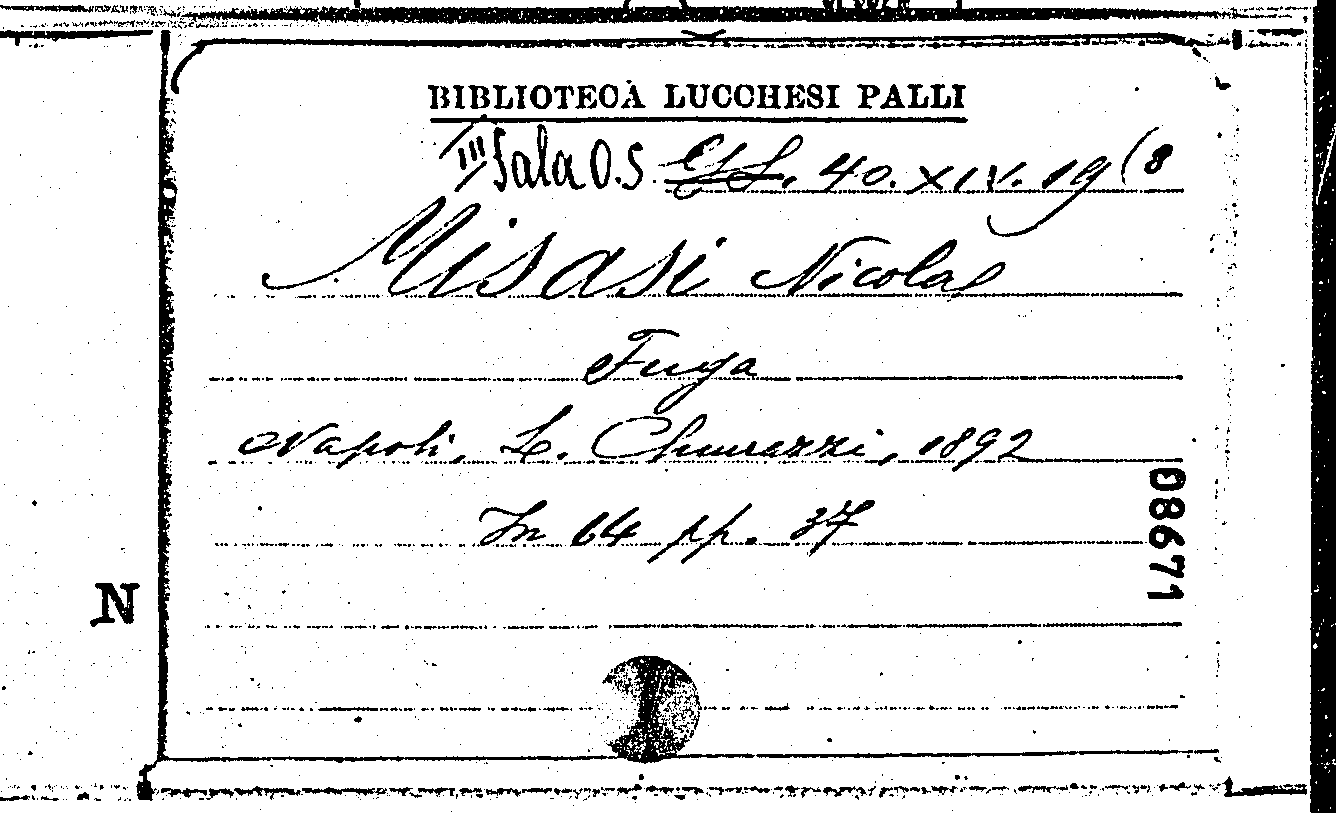 BIBLIOTECA LUCCHESI PALLI
III Sala O.S. 40. XIV. 19 (8
Misasi Nicola
Fuga
Napoli, L. Chiurazzi, 1892
In 64 pp. 37
08671
N